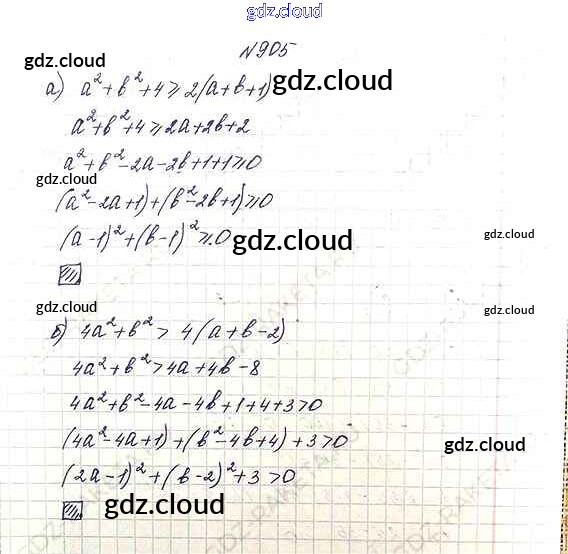 gdz.cloud
N905
gdz.cloud
а) a²+b²+4 ≥ 2(a+b+1) gdz.cloud
a²+b²+4 ≥ 2a+2b+2
a²+b²-2a-2b+1+1 ≥ 0
gdz.cloud
(a²-2a+1)+(b²-2b+1) ≥ 0
(a-1)²+(b-1)² ≥ 0 gdz.cloud gdz.cloud
gdz.cloud gdz.cloud
б) 4a²+b² > 4(a+b-2)
4a²+b² > 4a+4b-8
4a²+b²-4a-4b+1+4+3 > 0
(4a²-4a+1)+(b²-4b+4)+3 > 0 gdz.cloud
(2a-1)²+(b-2)²+3 > 0
gdz.cloud gdz.cloud